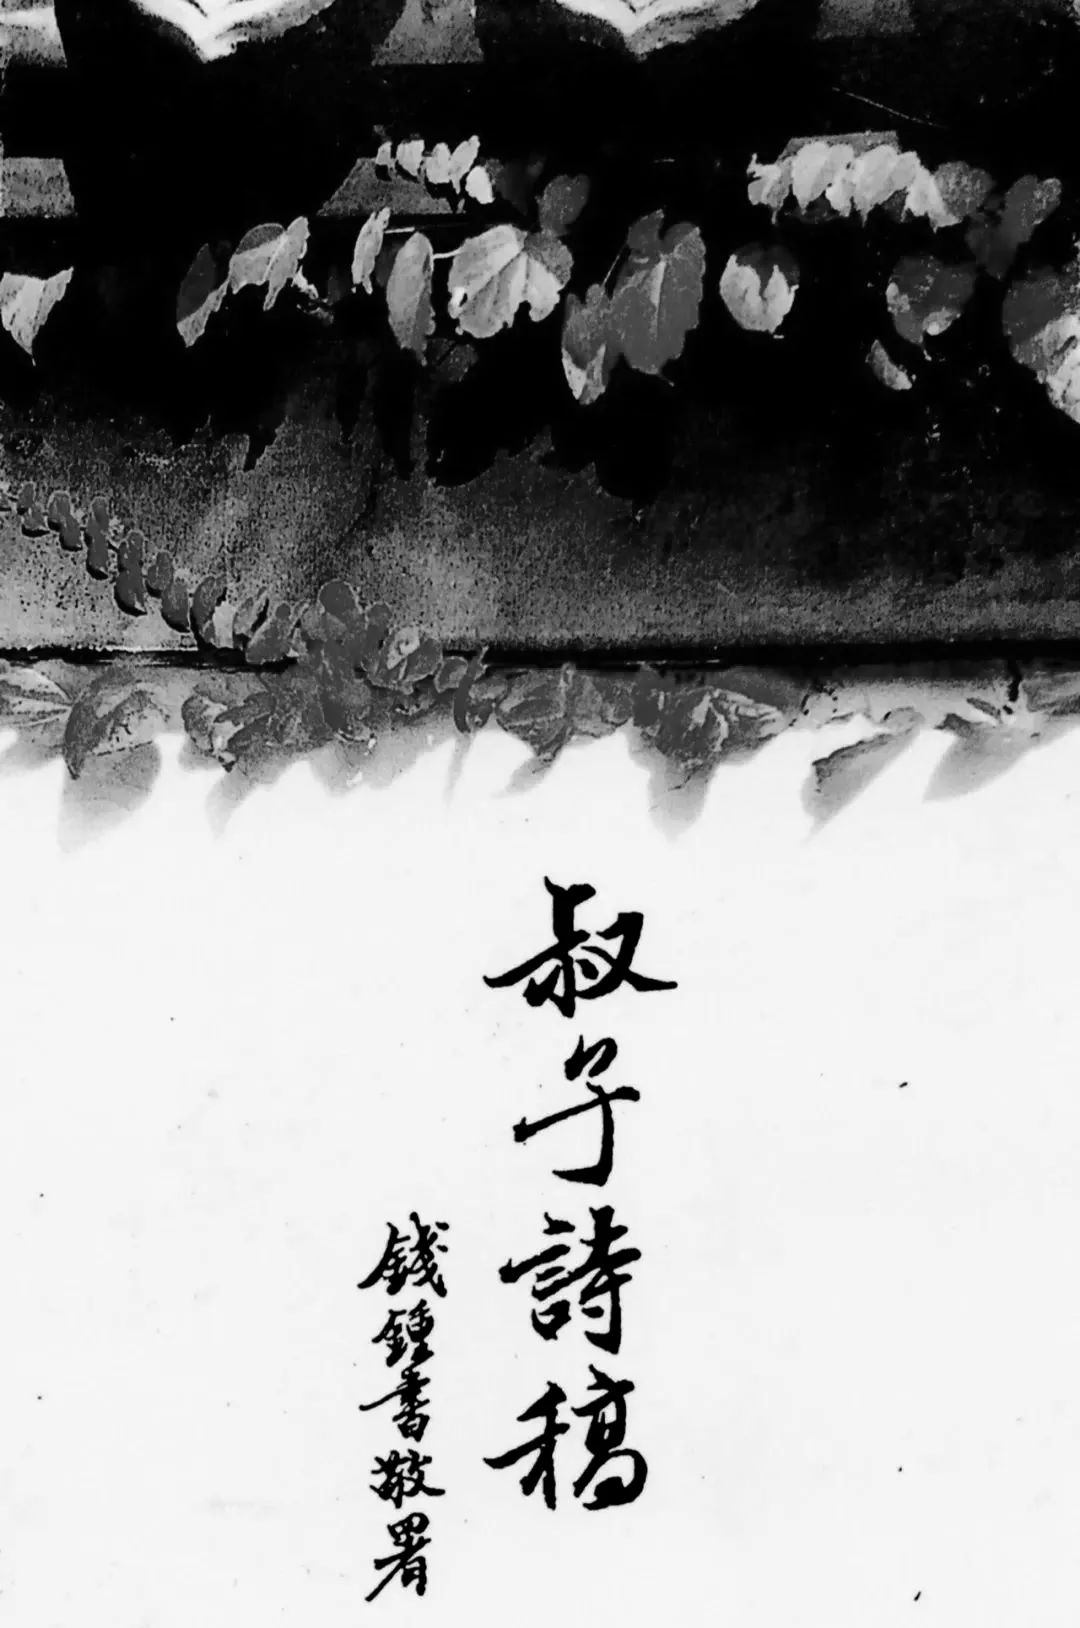 叔子詩稿
錢鍾書敬署